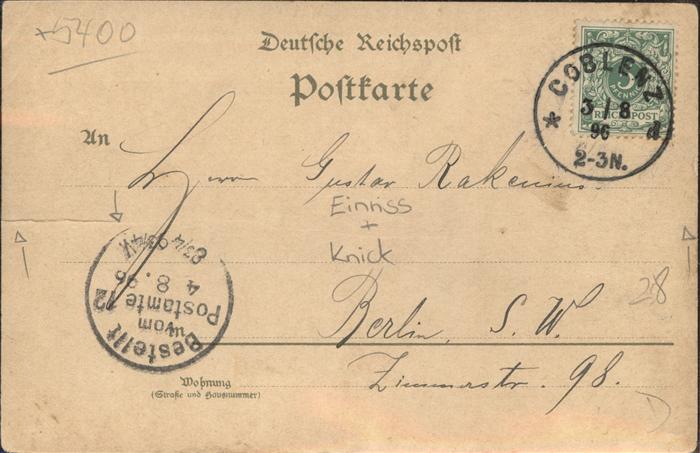 +5400
Deutsche Reichspost
Postkarte
5
PFENNIG
REICHSPOST
COBLENZ
3/8
96
2-3N.
* d
An
Herrn Gustav Rakenius
Einriss
+
Knick
Bestellt
vom
Postamte 12
4.8.96
8 3/4-9 3/4V.
28
Berlin, S. W.
Wohnung
(Straße und Hausnummer)
Zimmerstr. 98.